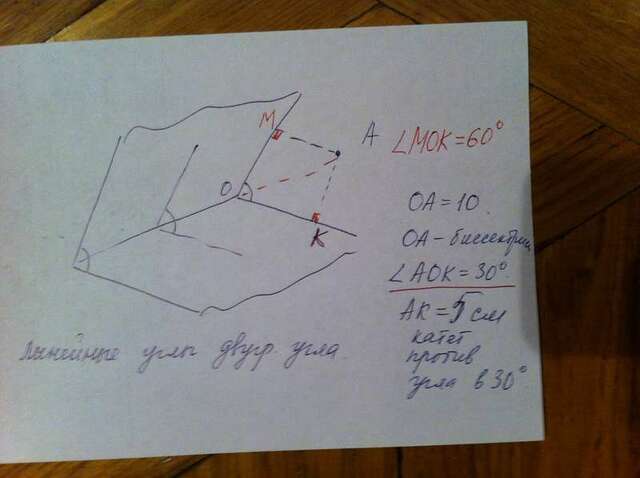 M
A
O
K
∠MOK = 60°
OA = 10
OA - биссектриса
∠AOK = 30°
AK = 5 см
катет
против
угла в 30°
Линейные углы двугр. угла.